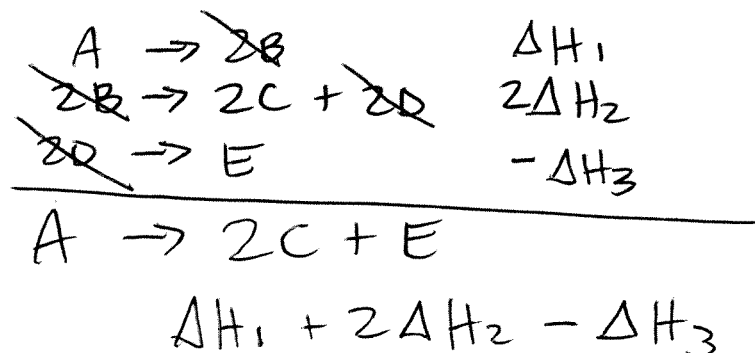 A → 2B ΔH₁
2B → 2C + 2D 2ΔH₂
2D → E -ΔH₃
A → 2C + E
ΔH₁ + 2ΔH₂ - ΔH₃